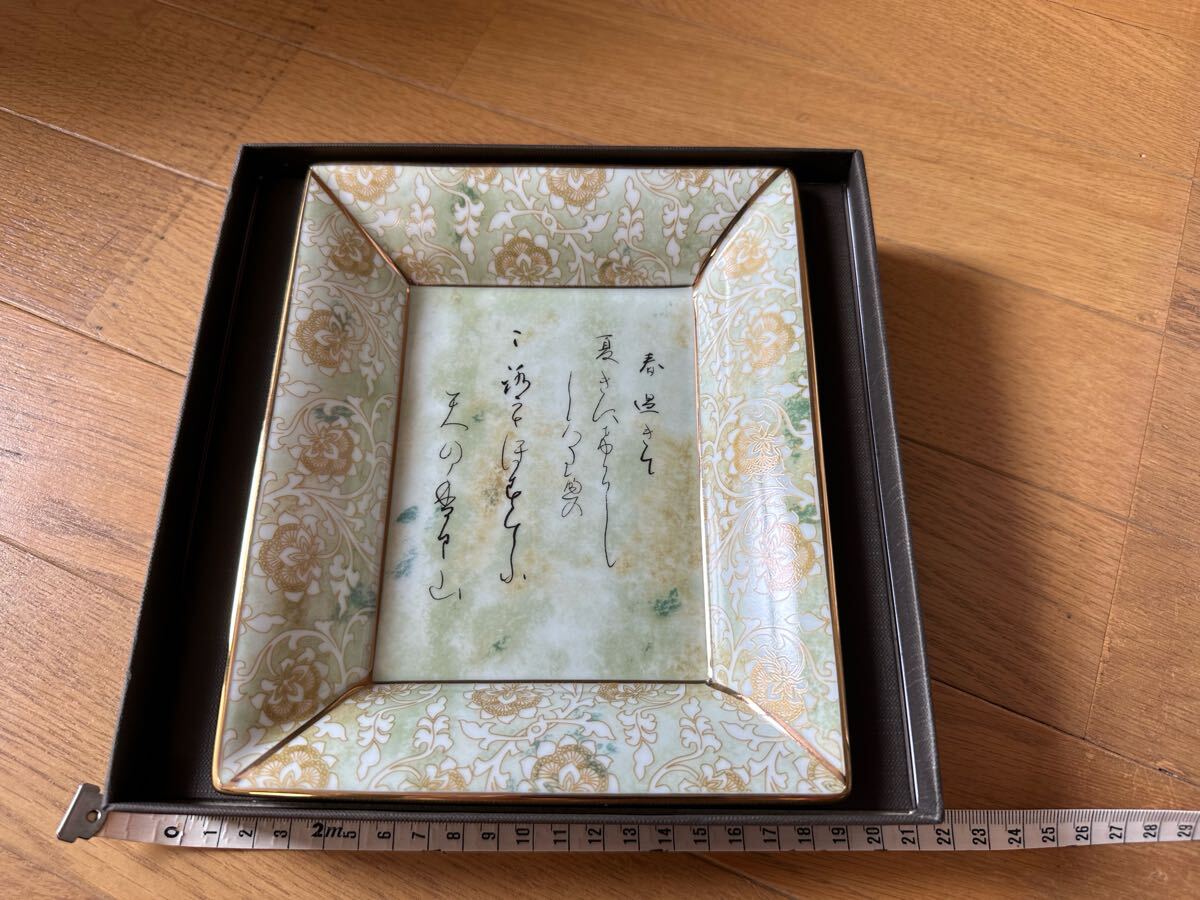 春過きて
夏きにけらし
しろたへの
ころもほすてふ
天の香く山
0 1 2 3 2m 5 6 7 8 9 10 11 12 13 14 15 16 17 18 19 20 21 22 23 24 25 26 27 28 29